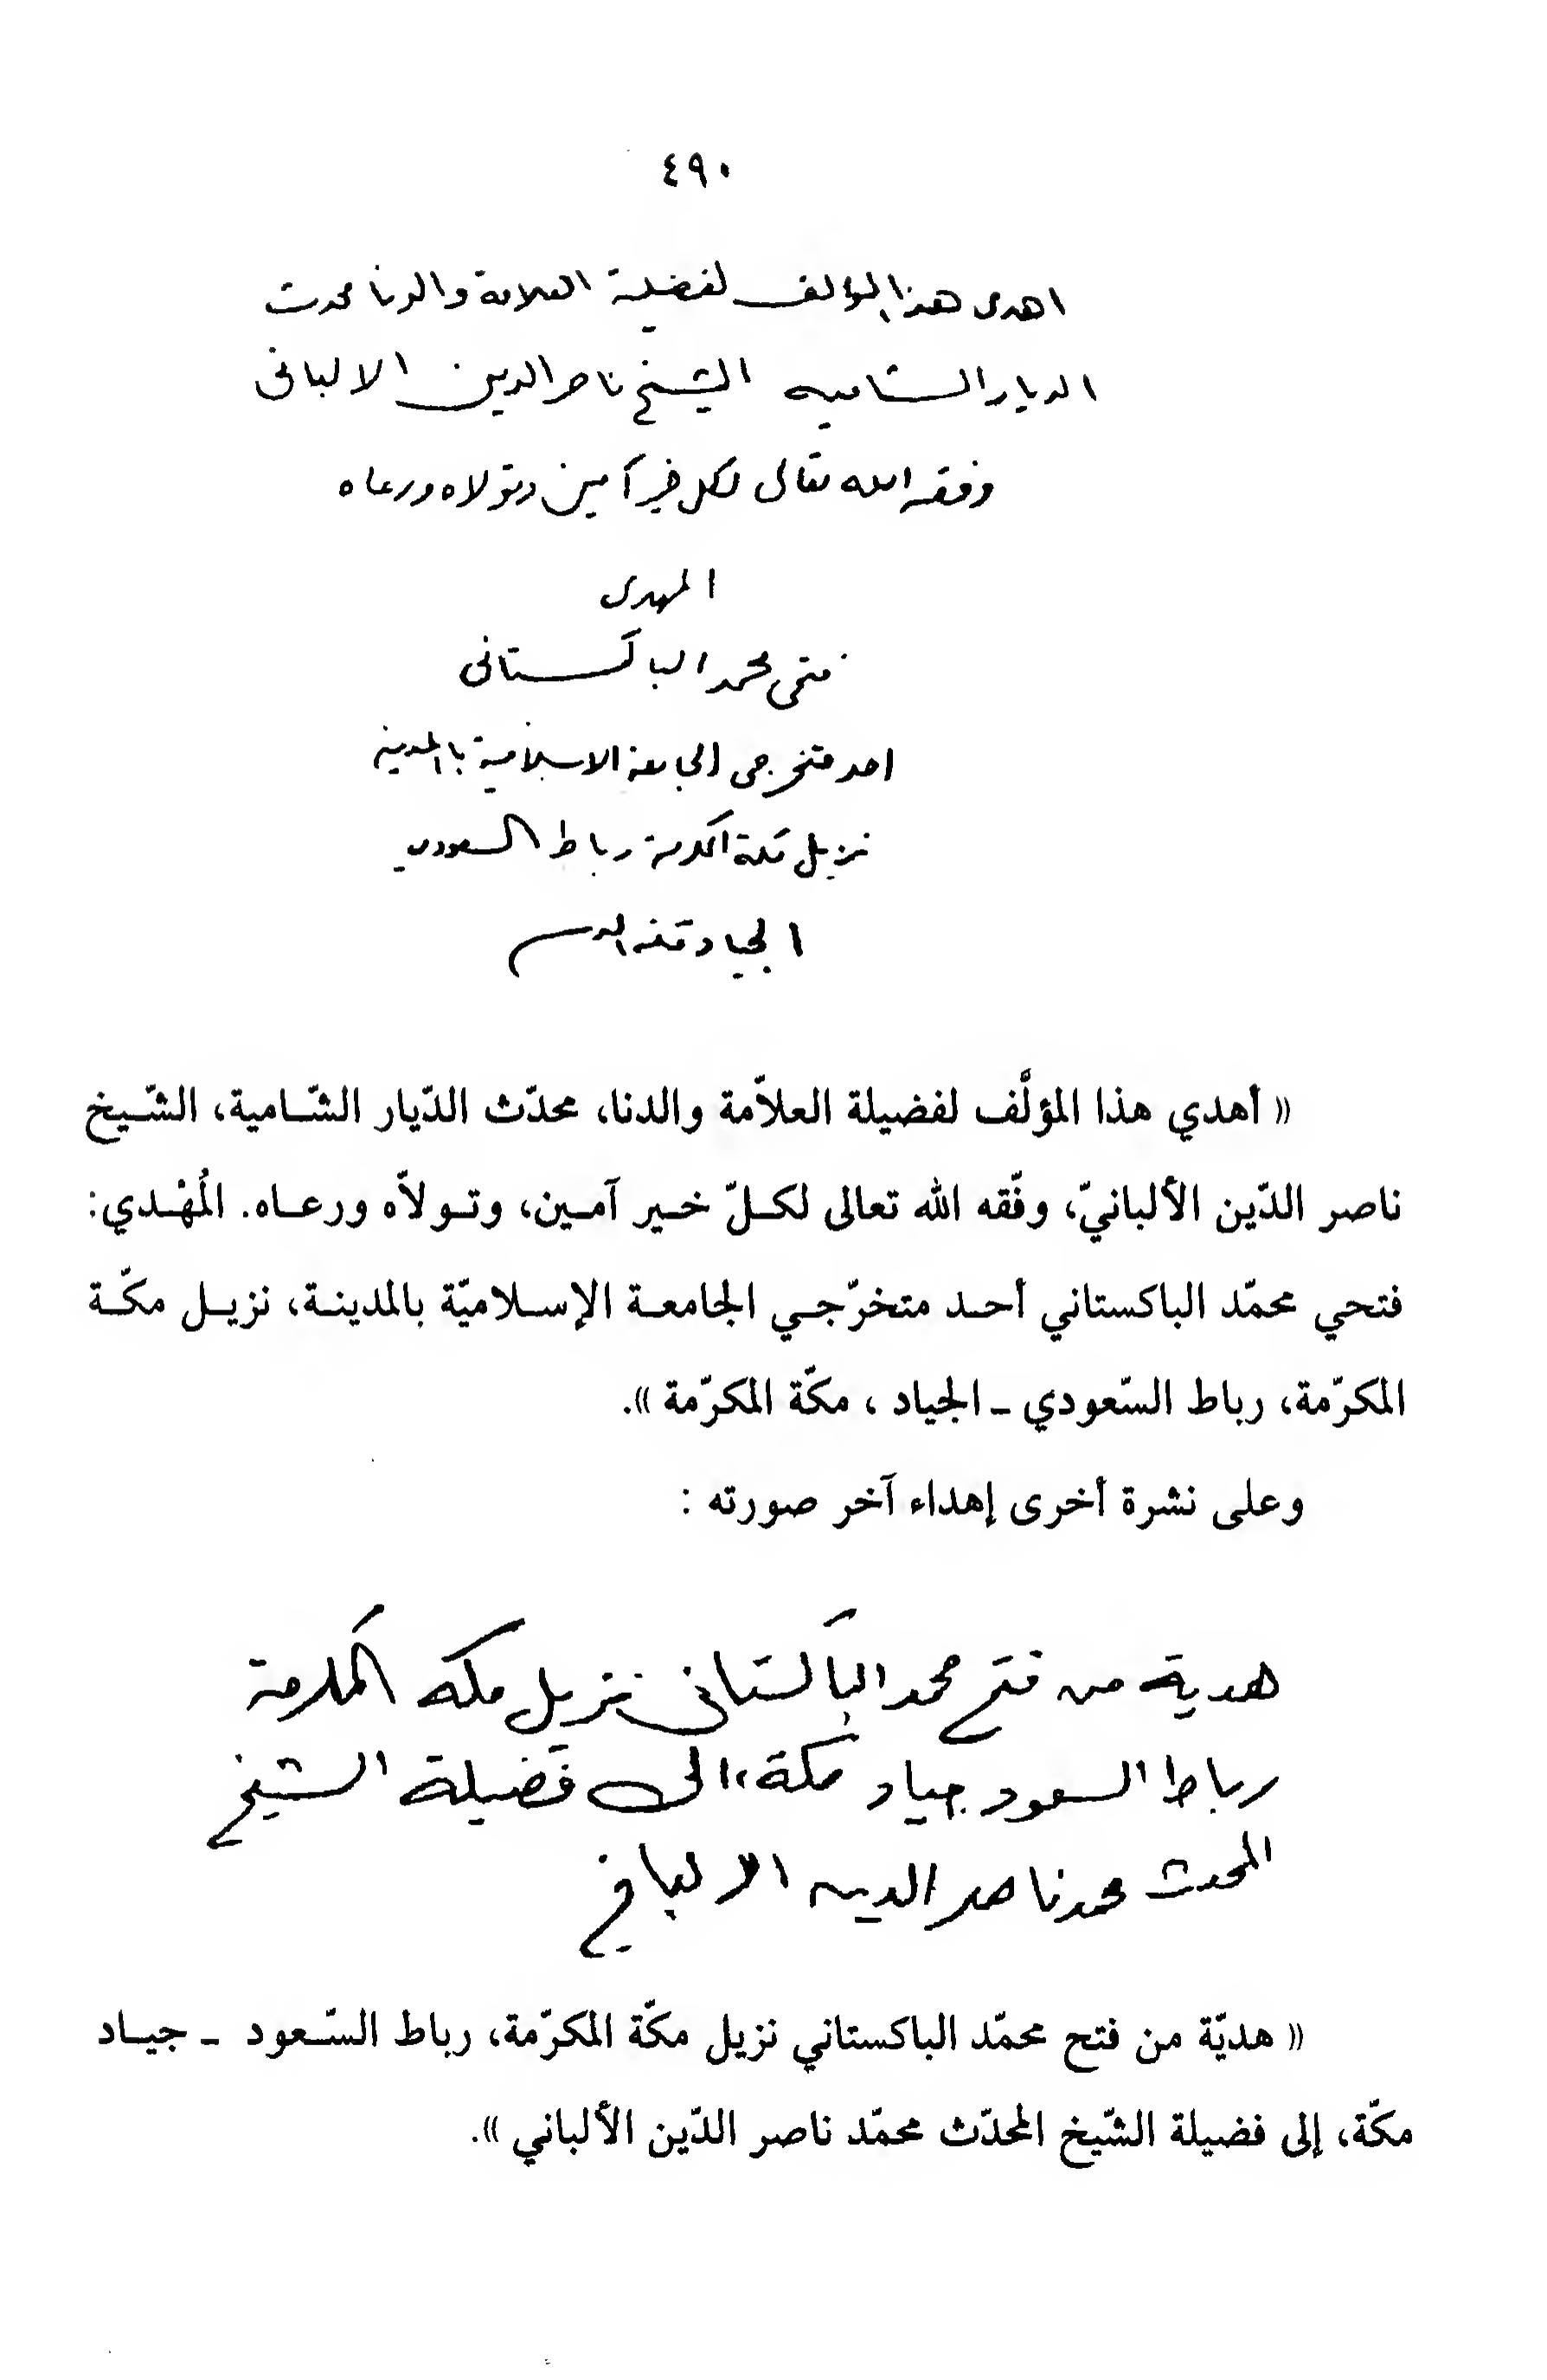 ٤٩٠
اهدى هذا المؤلف لفضيلة العلامة والدنا محدث
الديار الشاميه الشيخ ناصر الدين الالبانى
وفقه الله تعالى لكل خير آمين وتولاه ورعاه
المهدى
فتحى محمد الباكستانى
احد متخرجى الجامعة الاسلامية بالمدينة
نزيل مكة المكرمة رباط السعودى
الجياد
« أهدي هذا المؤلَّف لفضيلة العلاّمة والدنا، محدّث الدّيار الشّامية، الشّيخ
ناصر الدّين الألبانيّ، وفّقه الله تعالى لكلّ خير آمين، وتولاّه ورعاه. المُهْدي:
فتحي محمّد الباكستاني أحد متخرّجي الجامعة الإسلاميّة بالمدينة، نزيل مكّة
المكرّمة، رباط السّعودي ـ الجياد ، مكّة المكرّمة ».
وعلى نشرة أخرى إهداء آخر صورته :
هدية من فتح محمد الباكستانى نزيل مكة المكرمة
رباط السعود جياد مكة، الى فضيلة الشيخ
المحدث محمد ناصر الدين الالبانى
« هديّة من فتح محمّد الباكستاني نزيل مكّة المكرّمة، رباط السّعود ـ جياد
مكّة، إلى فضيلة الشّيخ المحدّث محمّد ناصر الدّين الألباني ».